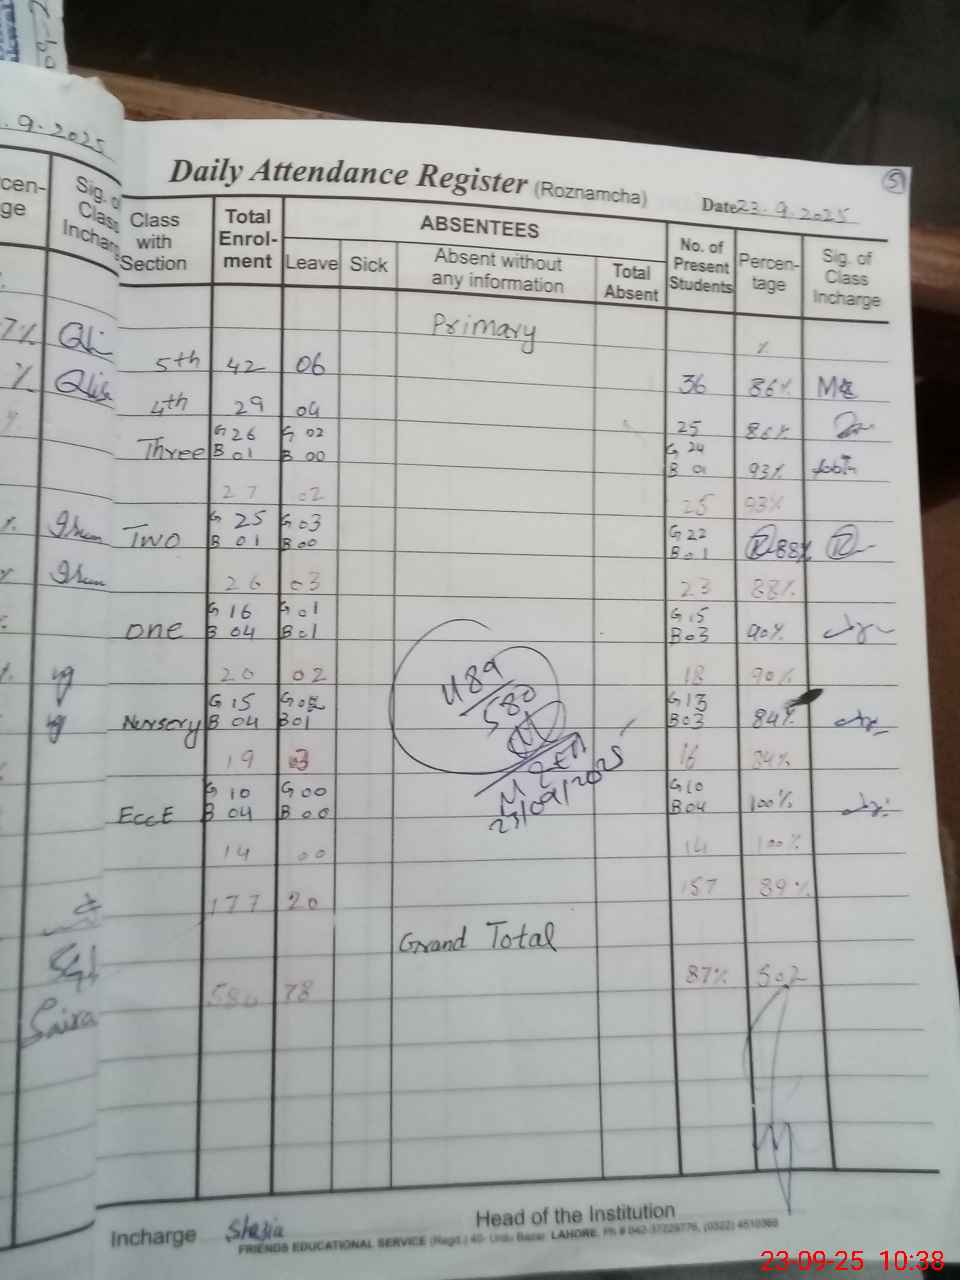 .9.2025
Daily Attendance Register (Roznamcha)
51
Date 23.9.2025
cen-
ge
Sig. of
Class
Inchar
Class
with
Section
Total
Enrol-
ment
ABSENTEES
Leave
Sick
Absent without
any information
Total
Absent
No. of
Present
Students
Percen-
tage
Sig. of
Class
Incharge
Primary
%
5th 42 06 36 86%
4th 29 04 25 86%
G 26 G 02 G 24
Three B 01 B 00 B 01 93%
27 02 25 93%
G 25 G 03 G 22
Two B 01 B 00 B 01 88%
26 03 23 88%
G 16 G 01 G 15
One B 04 B 01 B 03 90%
20 02 18 90%
G 15 G 02 G 13
Nursery B 04 B 01 B 03 84%
19 03 16 84%
G 10 G 00 G 10
EccE B 04 B 00 B 04 100%
14 00 14 100%
177 20 157 89%
489
580
23/09/2025
Grand Total
580 78 87% 502
Saira
Incharge Shazia
Head of the Institution
FRIENDS EDUCATIONAL SERVICE (Regd.) 40- Urdu Bazar LAHORE. Ph #
23-09-25 10:38